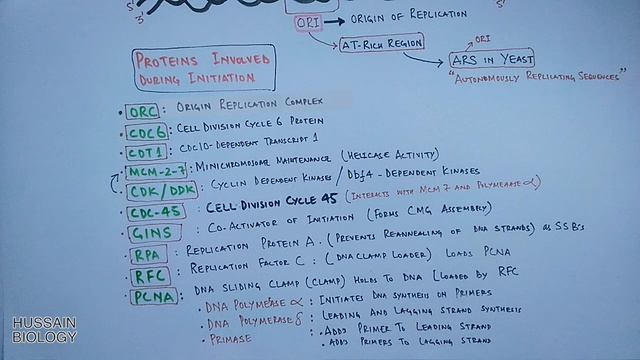 5'
3'
5'
ORI → ORIGIN OF REPLICATION
AT-RICH REGION
ORI
ARS IN YEAST
"AUTONOMOUSLY REPLICATING SEQUENCES"
PROTEINS INVOLVED
DURING INITIATION
• ORC : ORIGIN REPLICATION COMPLEX
• CDC6 : CELL DIVISION CYCLE 6 PROTEIN
• CDT1 : CDC10-DEPENDENT TRANSCRIPT 1
• MCM-2-7 : MINICHROMOSOME MAINTENANCE (HELICASE ACTIVITY)
• CDK/DDK : CYCLIN DEPENDENT KINASES / Dbf4-DEPENDENT KINASES
• CDC-45 : CELL DIVISION CYCLE 45 (INTERACTS WITH MCM7 AND POLYMERASE α)
• GINS : CO-ACTIVATOR OF INITIATION (FORMS CMG ASSEMBLY)
• RPA : REPLICATION PROTEIN A. (PREVENTS REANNEALING OF DNA STRANDS) as SSB's
• RFC : REPLICATION FACTOR C : (DNA CLAMP LOADER) LOADS PCNA
• PCNA : DNA SLIDING CLAMP (CLAMP) HOLDS TO DNA [LOADED BY RFC
• DNA POLYMERASE α : INITIATES DNA SYNTHESIS ON PRIMERS
• DNA POLYMERASE δ : LEADING AND LAGGING STRAND SYNTHESIS
• PRIMASE : • ADDS PRIMER TO LEADING STRAND
• ADDS PRIMERS TO LAGGING STRAND
HUSSAIN
BIOLOGY